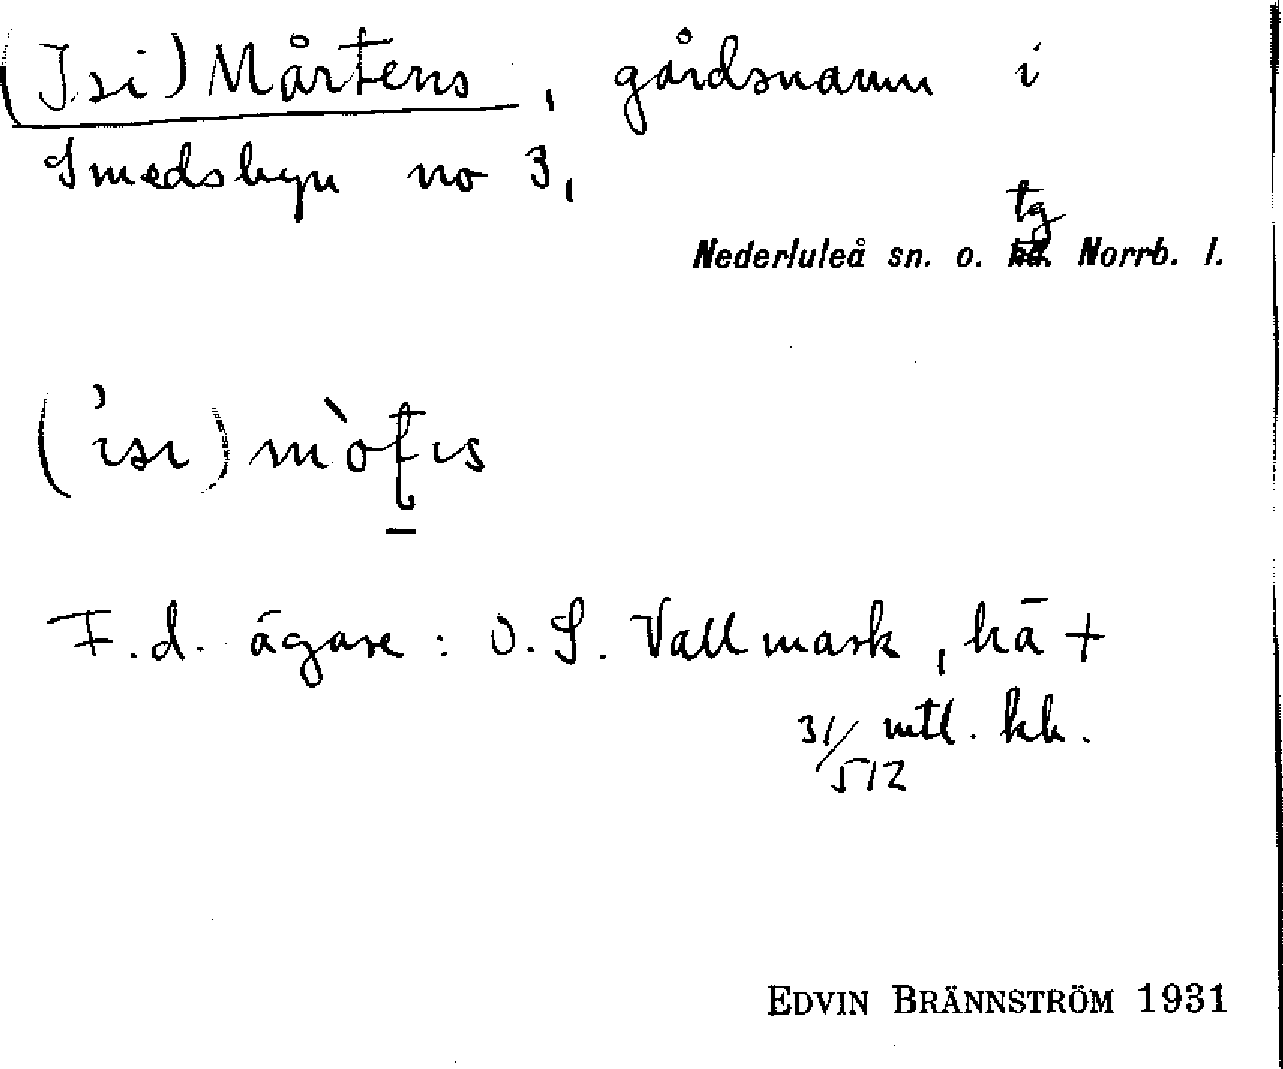 (Isi) Mårtens, gårdsnamn i
Smedsbyn no 3,
tg
Nederluleå sn. o. Norrb. l.
F.d. ägare: O.S. Vallmark, hä +
31/512 mtl. kk.
EDVIN BRÄNNSTRÖM 1931